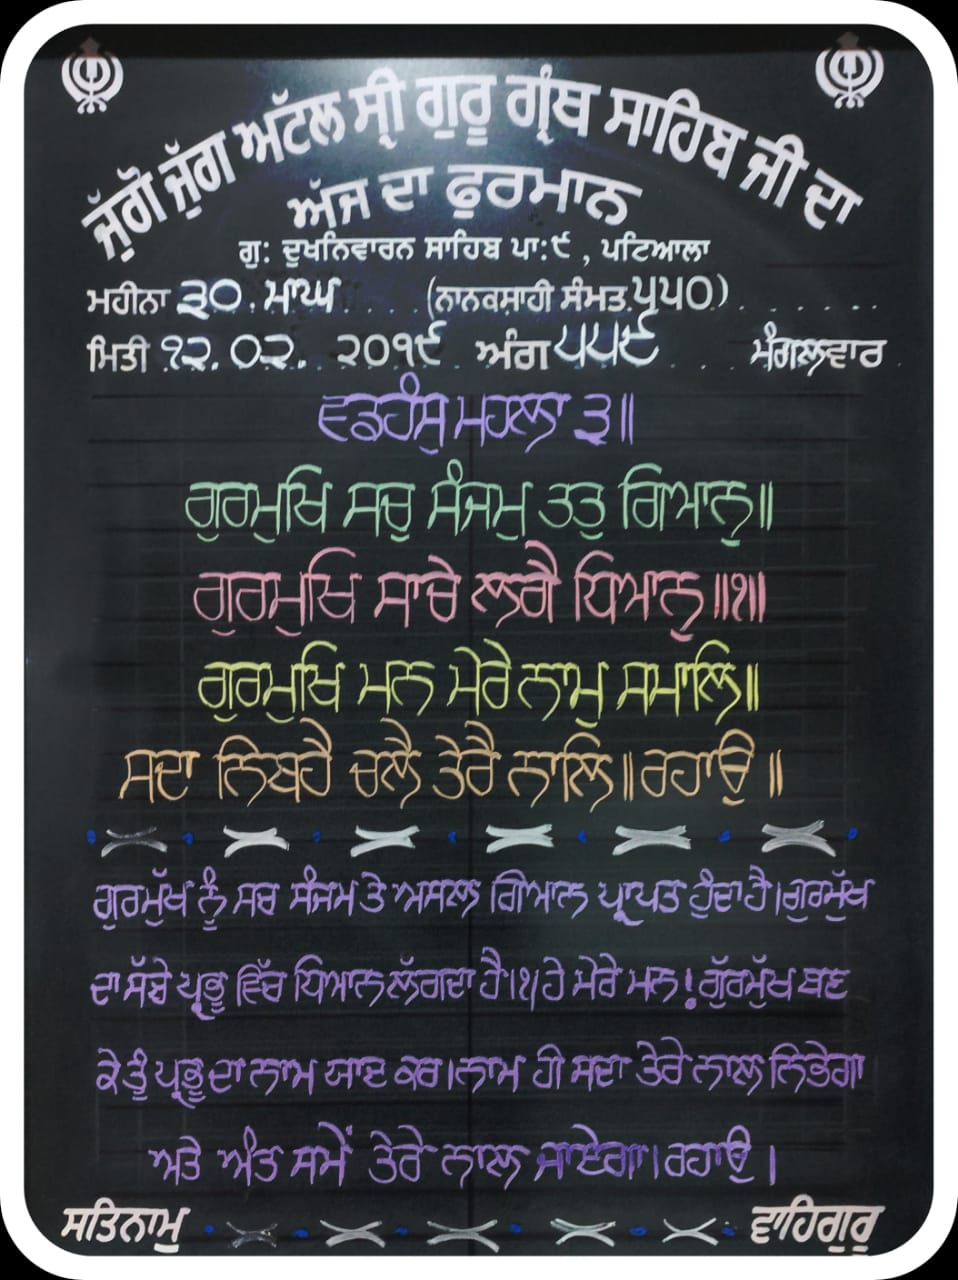 ਜੁੱਗੋ ਜੁੱਗ ਅਟੱਲ ਸ੍ਰੀ ਗੁਰੂ ਗ੍ਰੰਥ ਸਾਹਿਬ ਜੀ ਦਾ
ਅੱਜ ਦਾ ਫੁਰਮਾਨ
ਗੁ: ਦੁਖਨਿਵਾਰਨ ਸਾਹਿਬ ਪਾ:੯, ਪਟਿਆਲਾ
ਮਹੀਨਾ ੩੦. ਮਾਘ (ਨਾਨਕਸ਼ਾਹੀ ਸੰਮਤ ੫੫੦)
ਮਿਤੀ ੧੨. ੦੨. ੨੦੧੯ ਅੰਗ ੫੫੯ ਮੰਗਲਵਾਰ
ਵਡਹੰਸੁ ਮਹਲਾ ੩॥
ਗੁਰਮੁਖਿ ਸਚੁ ਸੰਜਮੁ ਤਤੁ ਗਿਆਨੁ॥
ਗੁਰਮੁਖਿ ਸਾਚੇ ਲਗੈ ਧਿਆਨੁ॥੧॥
ਗੁਰਮੁਖਿ ਮਨ ਮੇਰੇ ਨਾਮੁ ਸਮਾਲਿ॥
ਸਦਾ ਨਿਬਹੈ ਚਲੈ ਤੇਰੈ ਨਾਲਿ॥ ਰਹਾਉ॥
ਗੁਰਮੁੱਖ ਨੂੰ ਸਚ ਸੰਜਮ ਤੇ ਅਸਲ ਗਿਆਨ ਪ੍ਰਾਪਤ ਹੁੰਦਾ ਹੈ।ਗੁਰਮੁੱਖ
ਦਾ ਸੱਚੇ ਪ੍ਰਭੂ ਵਿੱਚ ਧਿਆਨ ਲੱਗਦਾ ਹੈ।੧।ਹੇ ਮੇਰੇ ਮਨ! ਗੁੱਰਮੁੱਖ ਬਣ
ਕੇ ਤੂੰ ਪ੍ਰਭੂ ਦਾ ਨਾਮ ਯਾਦ ਕਰ।ਨਾਮ ਹੀ ਸਦਾ ਤੇਰੇ ਨਾਲ ਨਿਭੇਗਾ
ਅਤੇ ਅੰਤ ਸਮੇਂ ਤੇਰੇ ਨਾਲ ਜਾਏਗਾ।ਰਹਾਉ।
ਸਤਿਨਾਮੁ ਵਾਹਿਗੁਰੂ